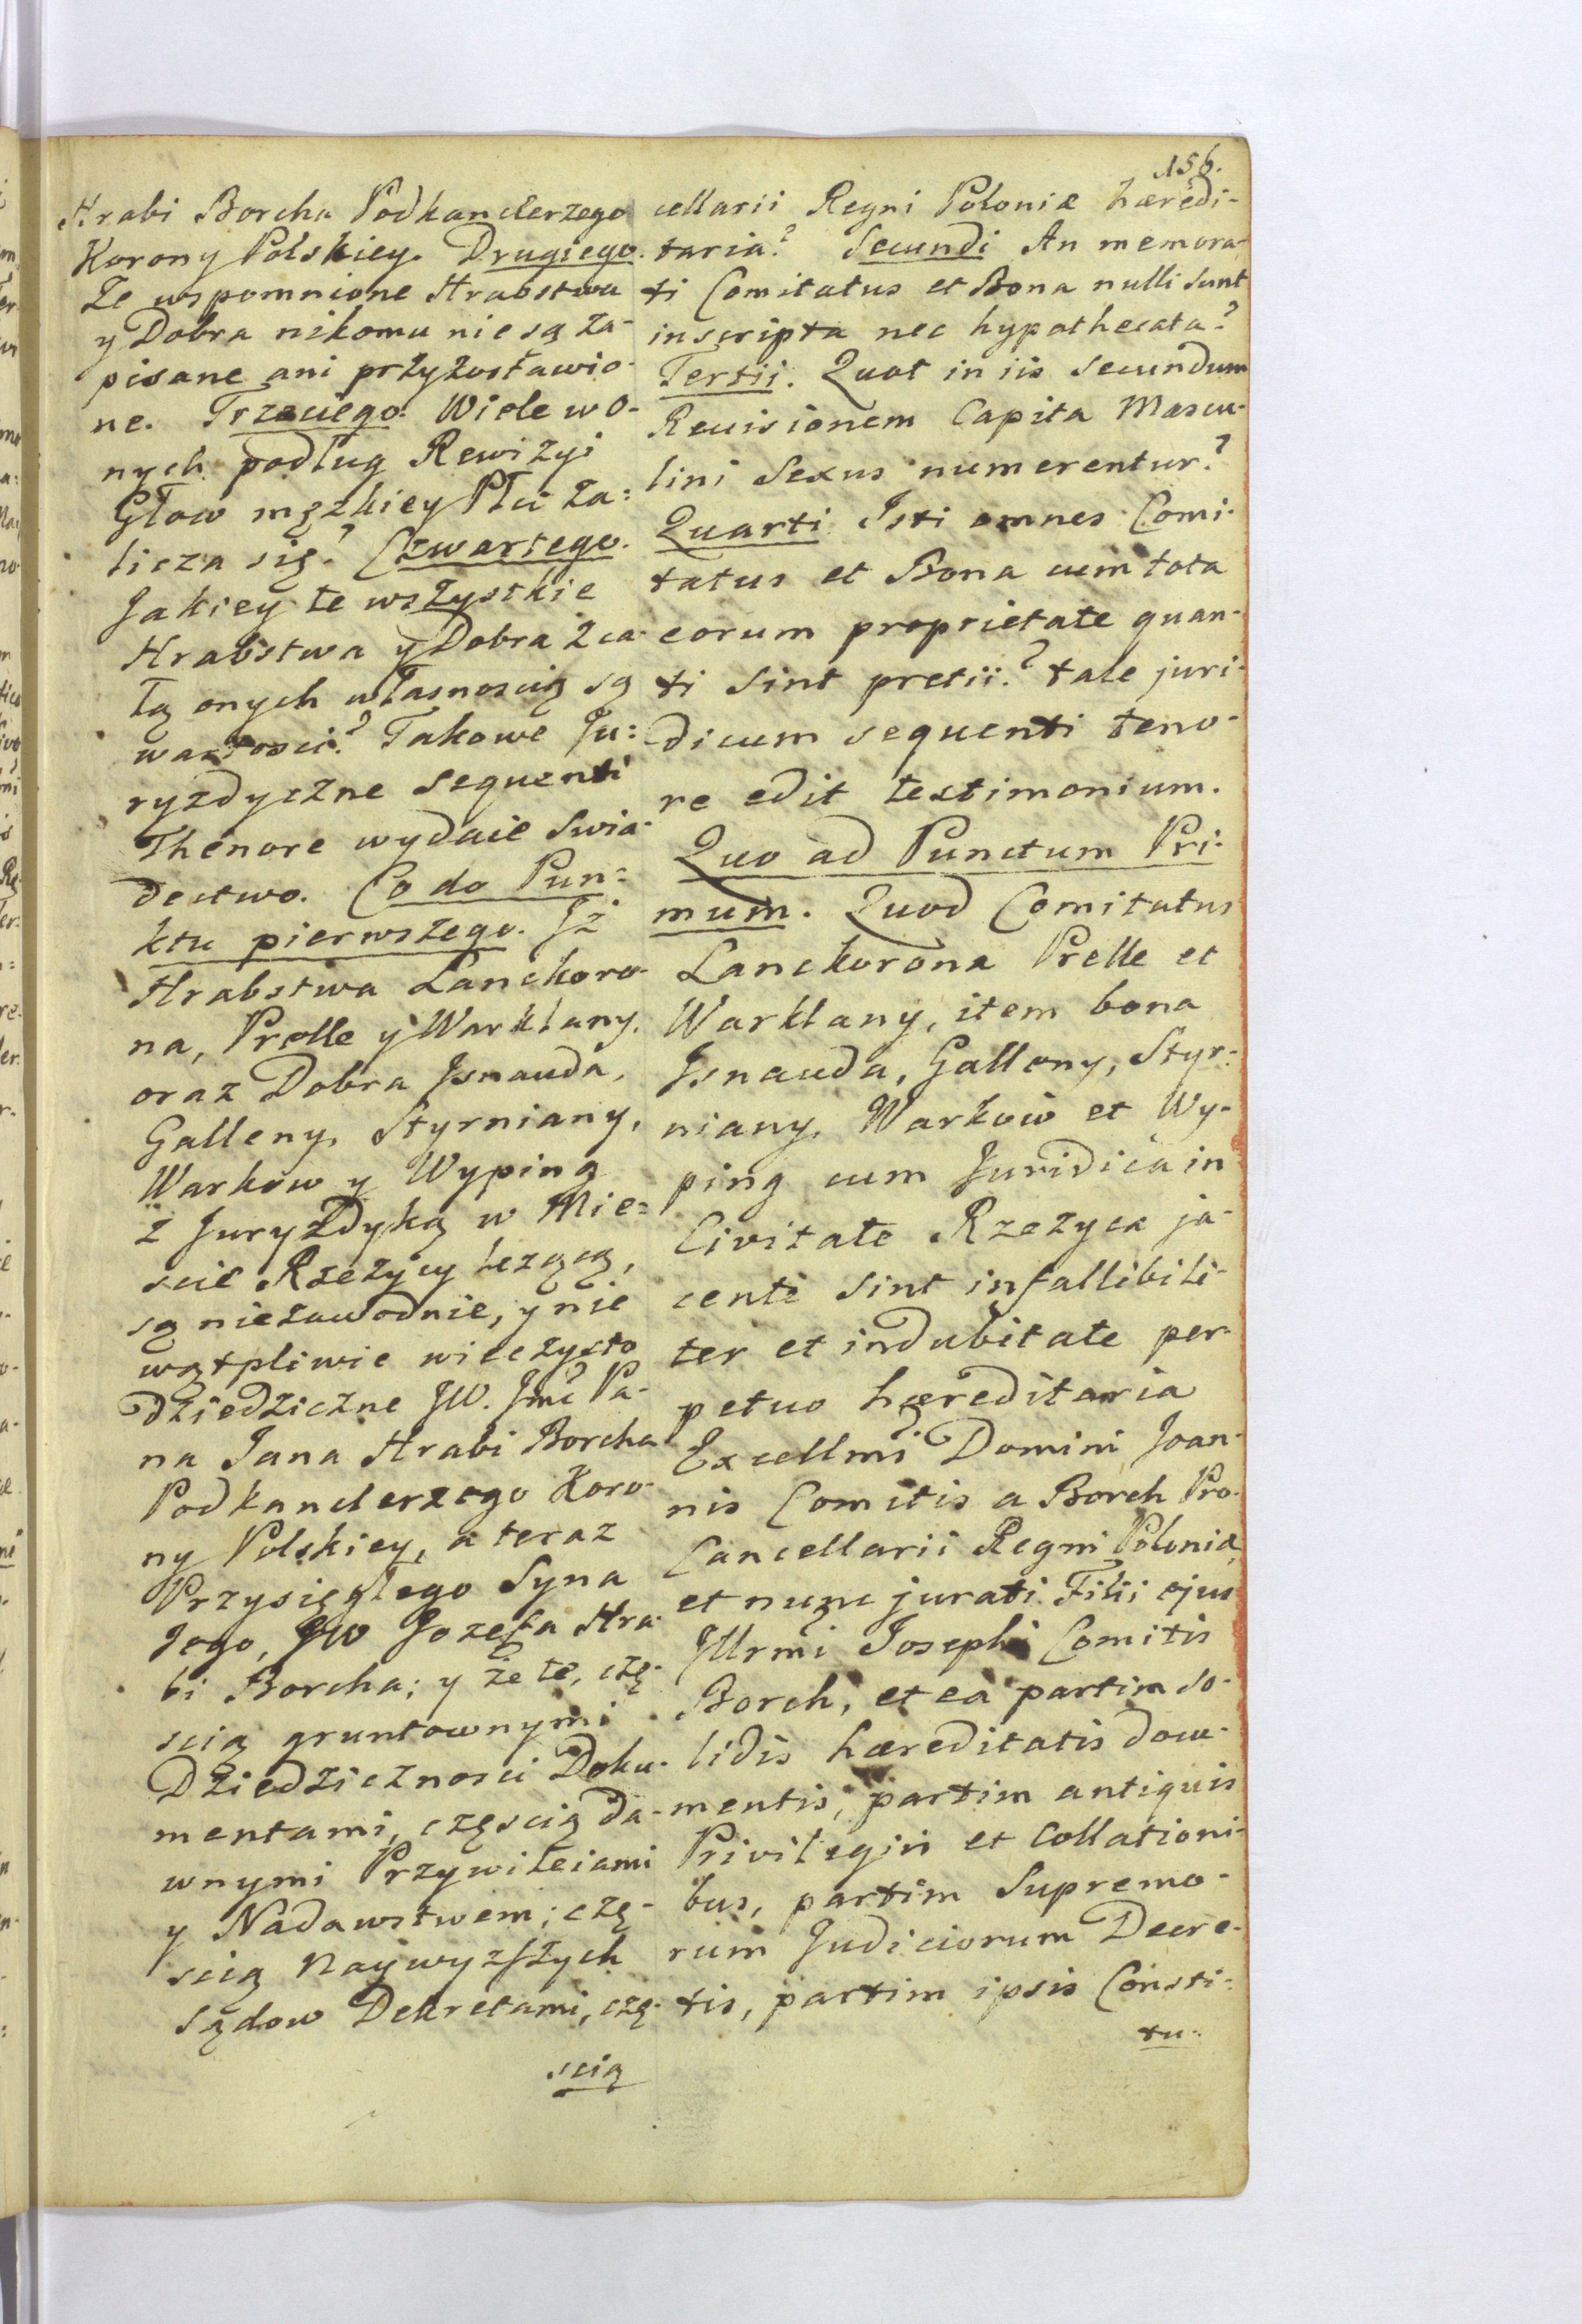 156.
Hrabi Borcha Podkanclerzego
Korony Polskiey. Drugiego.
Że wspomnione Hrabstwa
y Dobra nikomu nie są za-
pisane ani przyzostawio-
ne. Trzeciego. Wiele w o-
nych podług Rewizyi
Głow męzkiey Płci za=
licza się? Czwartego.
Jakiey te wszystkie
Hrabstwa y Dobra z ca-
łą onych własnoscią są
wartosci? Takowe Ju=
ryzdyczne sequenti
Thenore wydaie Swia-
dectwo. Co do Pun=
ktu pierwszego. Jż
Hrabstwa Lanckoro-
na, Prelle y Warklany,
oraz Dobra Jsnauda,
Galleny, Styrniany,
Warkow y Wyping
z Juryzdyką w Mie=
scie Rzeżycy leżącą,
są niezawodnie, y nie
wątpliwie wieczysto
Dziedziczne JW. Jmć Pa-
na Jana Hrabi Borcha
Podkanclerzego Koro-
ny Polskiey, a teraz
Przysięgłego Syna
Jego, JW Jozefa Hra-
bi Borcha; y że te, czę-
scią gruntownymi
Dziedzicznosci Doku-
mentami, częscią da-
wnymi Przywileiami
y Nadawstwem; czę-
scią Naywyzszych
Sądow Dekretami, czę-
scią
cellarii Regni Poloniæ hæredi-
taria? Secundi An memora-
ti Comitatus et Bona nulli sunt
inscripta nec hypothecata?
Tertii. Quot in iis secundum
Reuisionem Capita Mascu-
lini Sexus numerentur?
Quarti Isti omnes Comi-
tatus et Bona cum tota
eorum proprietate quan-
ti sint pretii? tale juri-
dicum sequenti teno-
re edit testimonium.
Quo ad Punctum Pri-
mum. Quod Comitatus
Lanckorona Prelle et
Warklany, item bona
Jsnauda, Galleny, Styr-
niany, Warkow et Wy-
ping cum Juridica in
Civitate Rzezyca ja-
centi sint infallibili-
ter et indubitate per-
petuo hæreditaria
Excellmi Domini Joan-
nis Comitis a Borch Pro-
Cancellarii Regni Poloniæ,
et nunc jurati Filii ejus
Jllrmi Josephi Comitis
Borch, et ea partim so-
lidis hæreditatis docu-
mentis, partim antiquis
Privilegiis et Collationi-
bus, partim Supremo-
rum Judiciorum Decre-
tis, partim ipsis Consti-
tu-